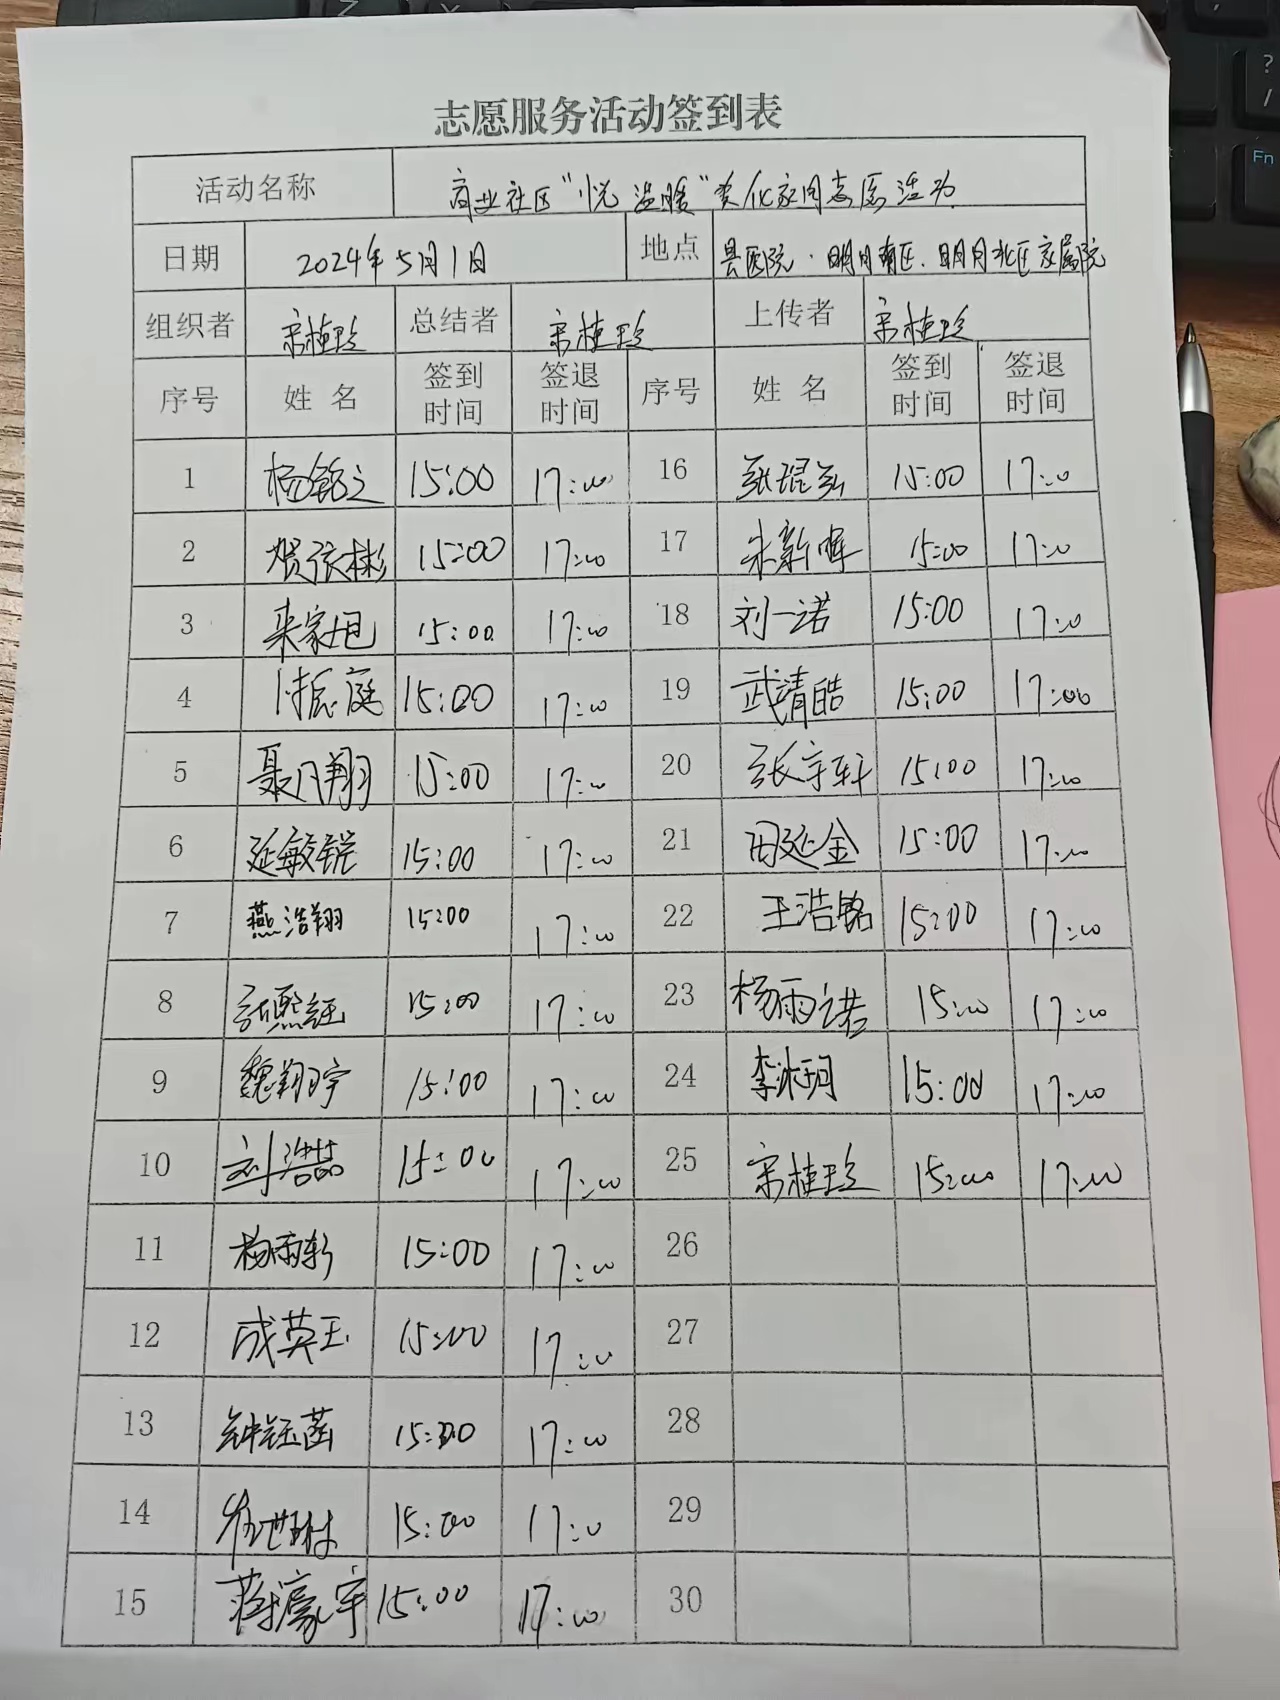 志愿服务活动签到表
活动名称 商业社区“悦 温暖”美化家园志愿活动
日期 2024年5月1日 地点 县医院·明月南区.明月北区家属院
组织者 宋桂玲 总结者 宋桂玲 上传者 宋桂玲
序号 姓名 签到时间 签退时间 序号 姓名 签到时间 签退时间
1 杨铭之 15:00 17:00 16 张琨弘 15:00 17:00
2 贺张彬 15:00 17:00 17 朱新晖 15:00 17:00
3 来家旭 15:00 17:00 18 刘一诺 15:00 17:00
4 付辰庭 15:00 17:00 19 武清皓 15:00 17:00
5 聂凡翔 15:00 17:00 20 张宇轩 15:00 17:00
6 延敏锐 15:00 17:00 21 田延金 15:00 17:00
7 燕浩翔 15:00 17:00 22 王浩铭 15:00 17:00
8 张熙 15:00 17:00 23 杨雨诺 15:00 17:00
9 魏翔宇 15:00 17:00 24 李沐玥 15:00 17:00
10 刘浩喆 15:00 17:00 25 宋桂玲 15:00 17:00
11 杨雨轩 15:00 17:00 26
12 成英玉 15:00 17:00 27
13 钟钰菡 15:00 17:00 28
14 15:00 17:00 29
15 蒋豪宇 15:00 17:00 30
Fn